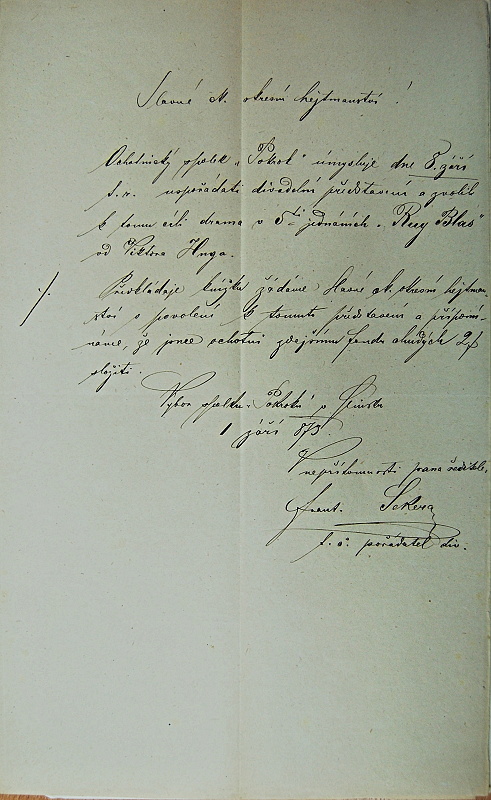 Slavné k. okresní hejtmanství!
Ochotnický spolek „Pokrok" úmysluje dne 8. září
t. r. uspořádati divadelní představení a zvolil
k tomu cíli drama v 5ti jednáních „Ruy Blas"
od Viktora Huga.
Předkládaje knížku žádáme slavné k. okresní hejtman-
ství o povolení k tomuto představení a připomí-
náme, že jsme ochotni zdejšímu fondu chudých 2f
složiti.
Výbor spolku „Pokroku" v
1 září 873.
V nepřítomnosti pana ředitele,
Frant. Sekera
t. č. pořadatel div.